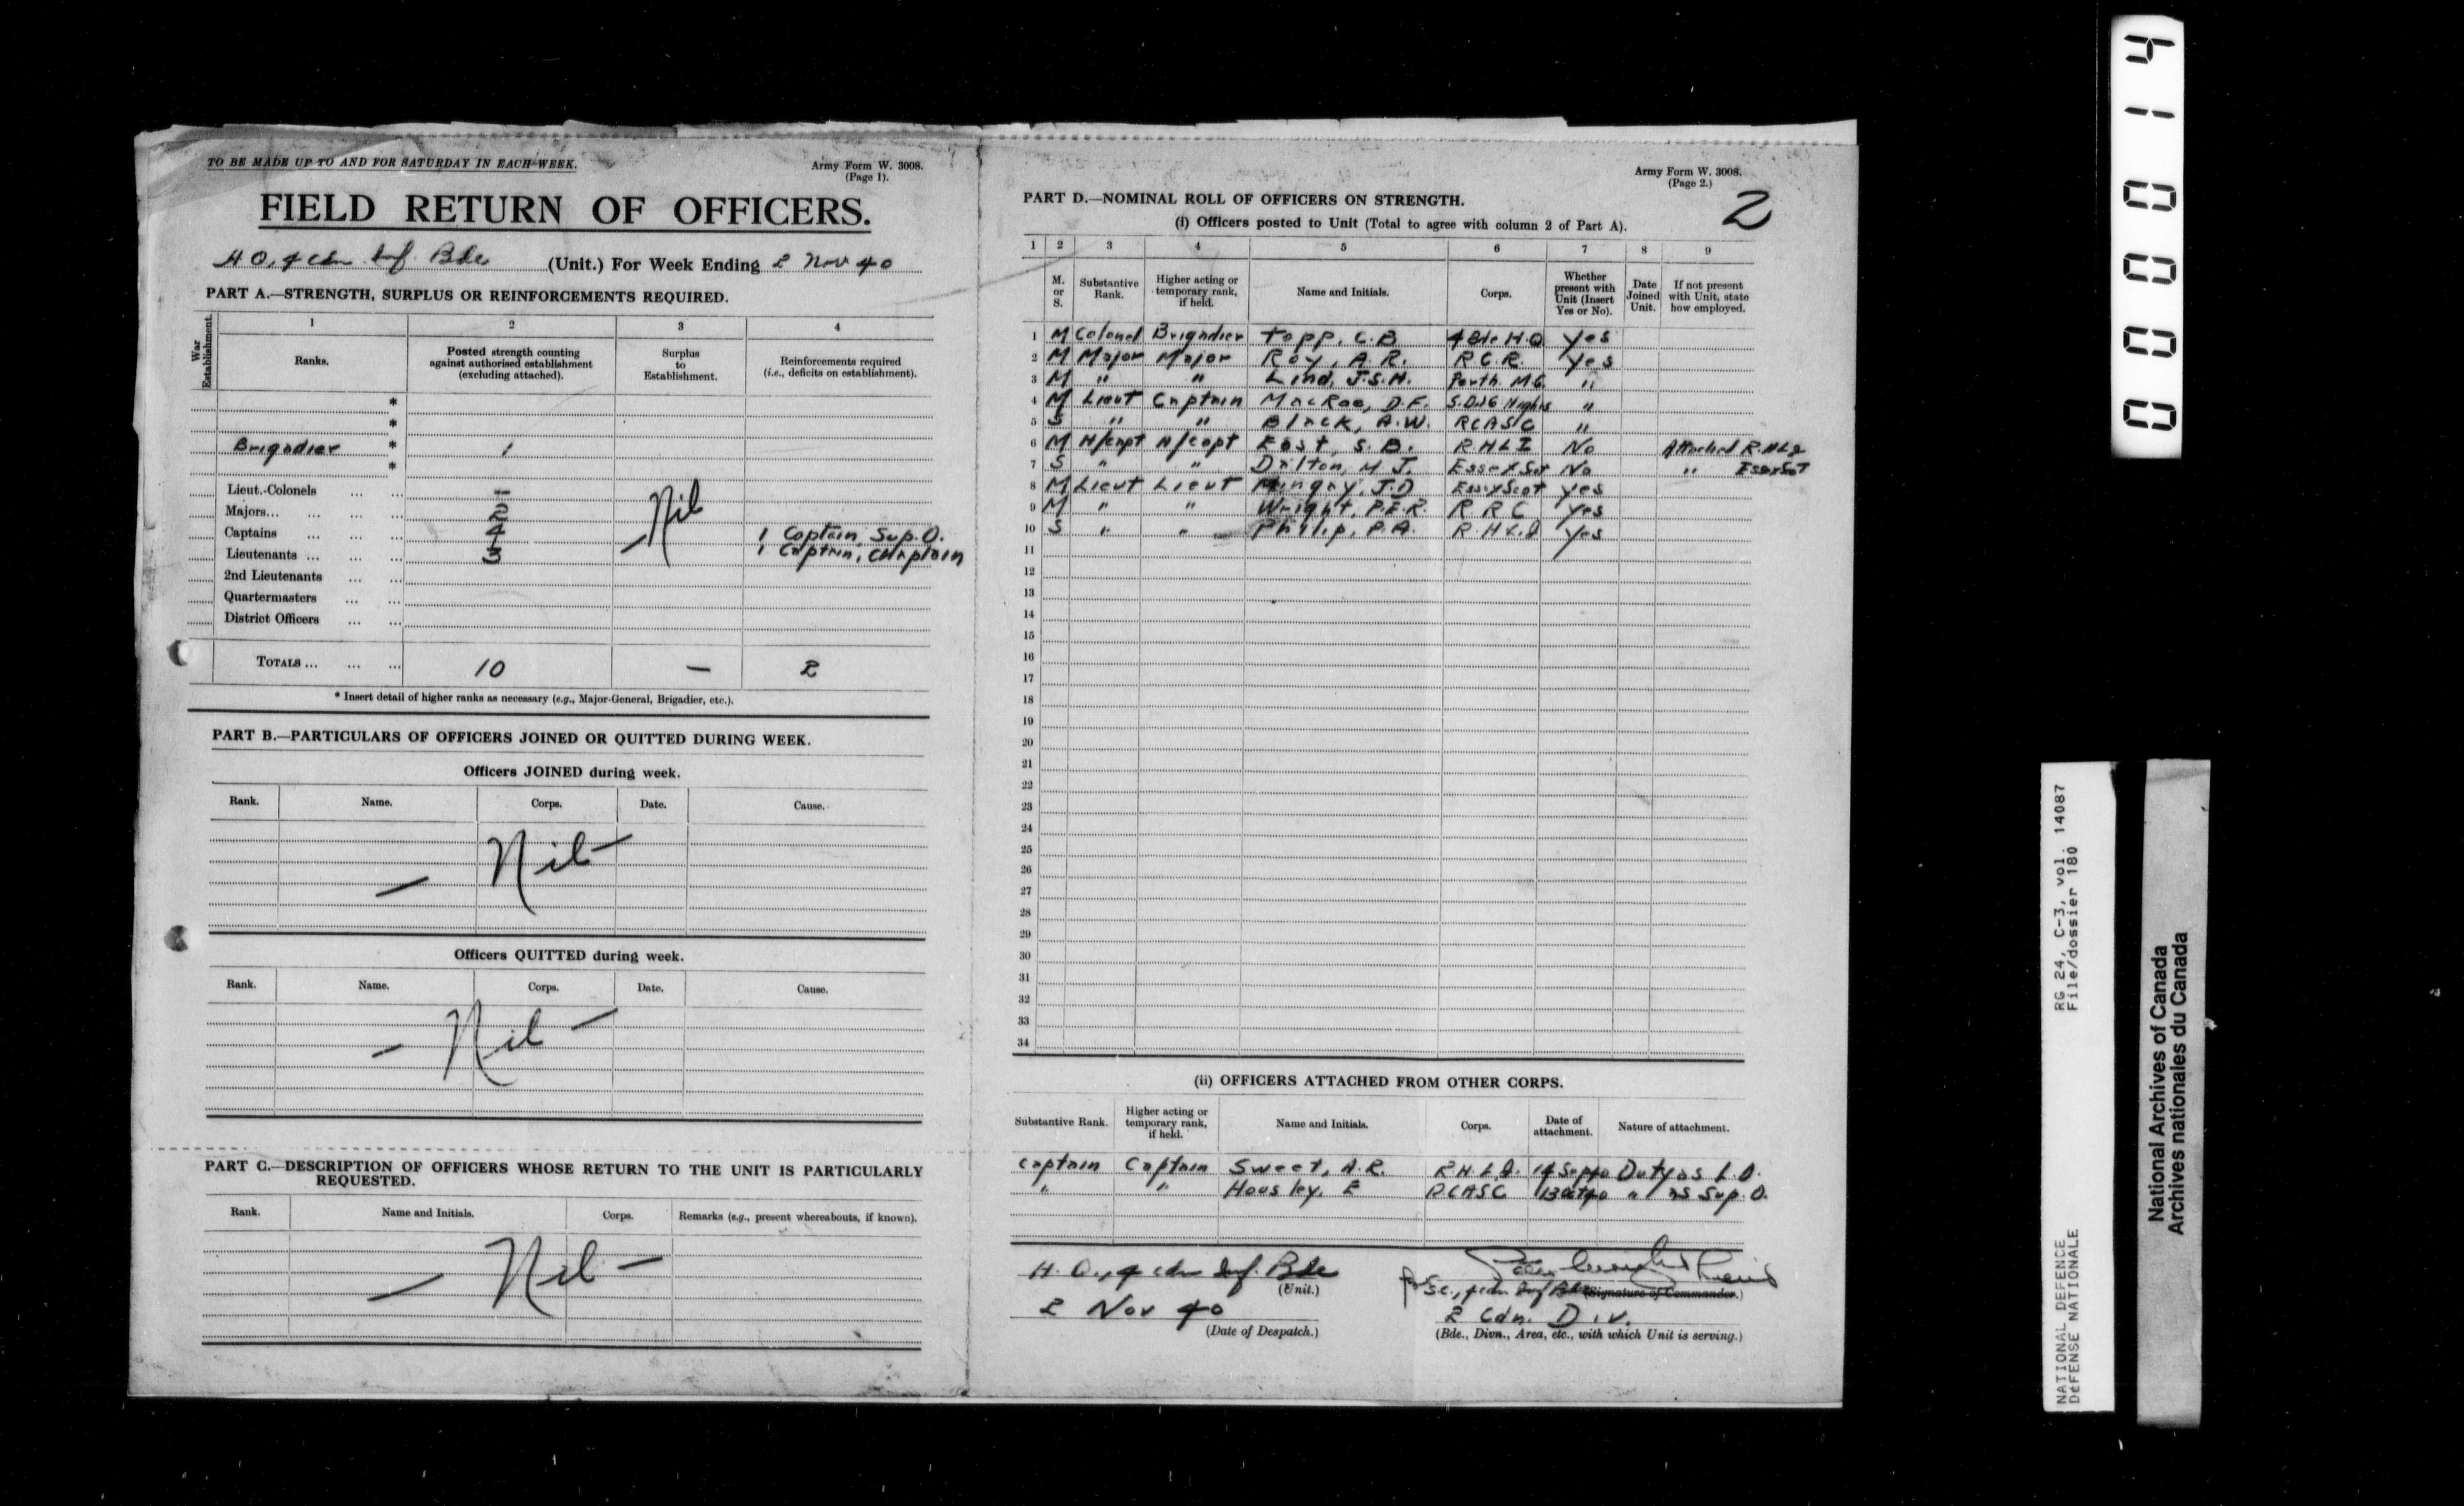 TO BE MADE UP TO AND FOR SATURDAY IN EACH WEEK.
Army Form W. 3008.
(Page 1).
FIELD RETURN OF OFFICERS.
H Q, 4 Cdn Inf. Bde (Unit.) For Week Ending 2 Nov 40
PART A.—STRENGTH, SURPLUS OR REINFORCEMENTS REQUIRED.
War Establishment.
1 2 3 4
Ranks.
Posted strength counting against authorised establishment (excluding attached).
Surplus to Establishment.
Reinforcements required (i.e., deficits on establishment).
*
*
Brigadier * 1
*
Lieut.-Colonels ... ... –
Majors... ... ... ... 2
Captains ... ... 4 1 Captain, Sup. O.
Lieutenants ... ... ... 3 1 Captain, Chaplain
– Nil
2nd Lieutenants ... ...
Quartermasters ... ...
District Officers ... ...
TOTALS ... ... ... 10 – 2
* Insert detail of higher ranks as necessary (e.g., Major-General, Brigadier, etc.).
PART B.—PARTICULARS OF OFFICERS JOINED OR QUITTED DURING WEEK.
Officers JOINED during week.
Rank. Name. Corps. Date. Cause.
– Nil –
Officers QUITTED during week.
Rank. Name. Corps. Date. Cause.
– Nil –
PART C.—DESCRIPTION OF OFFICERS WHOSE RETURN TO THE UNIT IS PARTICULARLY
REQUESTED.
Rank. Name and Initials. Corps. Remarks (e.g., present whereabouts, if known).
– Nil –
Army Form W. 3008.
(Page 2.)
2
PART D.—NOMINAL ROLL OF OFFICERS ON STRENGTH.
(i) Officers posted to Unit (Total to agree with column 2 of Part A).
1 2 3 4 5 6 7 8 9
M. or S.
Substantive Rank.
Higher acting or temporary rank, if held.
Name and Initials.
Corps.
Whether present with Unit (Insert Yes or No).
Date Joined Unit.
If not present with Unit, state how employed.
1 M Colonel Brigadier Topp, C.B 4 Bde H.Q Yes
2 M Major Major Roy, A.R. R.C.R. Yes
3 M " " Lind, J.S.H. Perth. M.G. "
4 M Lieut Captain MacRae, D.F. S.D.&G Highrs "
5 S " " Black, A.W. RCASC "
6 M H/Capt H/Capt East, S.B. R H L I No Attached R.H.L.I
7 S " " Dalton, M J. Essex Scot No " Essex Scot
8 M Lieut Lieut Mingay, J.D Essex Scot Yes
9 M " " Wright, P.E.R. R R C Yes
10 S " " Philip, P.A. R.H.L.I Yes
11
12
13
14
15
16
17
18
19
20
21
22
23
24
25
26
27
28
29
30
31
32
33
34
(ii) OFFICERS ATTACHED FROM OTHER CORPS.
Substantive Rank.
Higher acting or temporary rank, if held.
Name and Initials.
Corps.
Date of attachment.
Nature of attachment.
Captain Captain Sweet, A.R. R.H.L.I. 14 Sep 40 Duty as L.O.
" " Housley, E RCASC 13 Oct 40 " as Sup. O.
H. Q., 4 Cdn Inf. Bde
(Unit.)
2 Nov 40
(Date of Despatch.)
Wright Lieut
for S.C., 4 Cdn Inf Bde (Signature of Commander.)
2 Cdn. Div.
(Bde., Divn., Area, etc., with which Unit is serving.)
000014
RG 24, C-3, vol. 14087
File/dossier 180
NATIONAL DEFENCE
DéFENSE NATIONALE
National Archives of Canada
Archives nationales du Canada